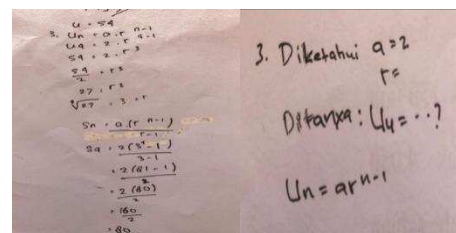 U = 54
3. Un = a.r n-1
U4 = 2.r 4-1
54 = 2.r3
54/2 = r3
27 = r3
3√27 = 3 = r
Sn = a(r n-1)/r-1
S4 = 2(34-1)/3-1
= 2(81-1)/2
= 2(80)/2
= 160/2
= 80
3. Diketahui a=2
r=
Ditanya: U4=..?
Un=arn-1